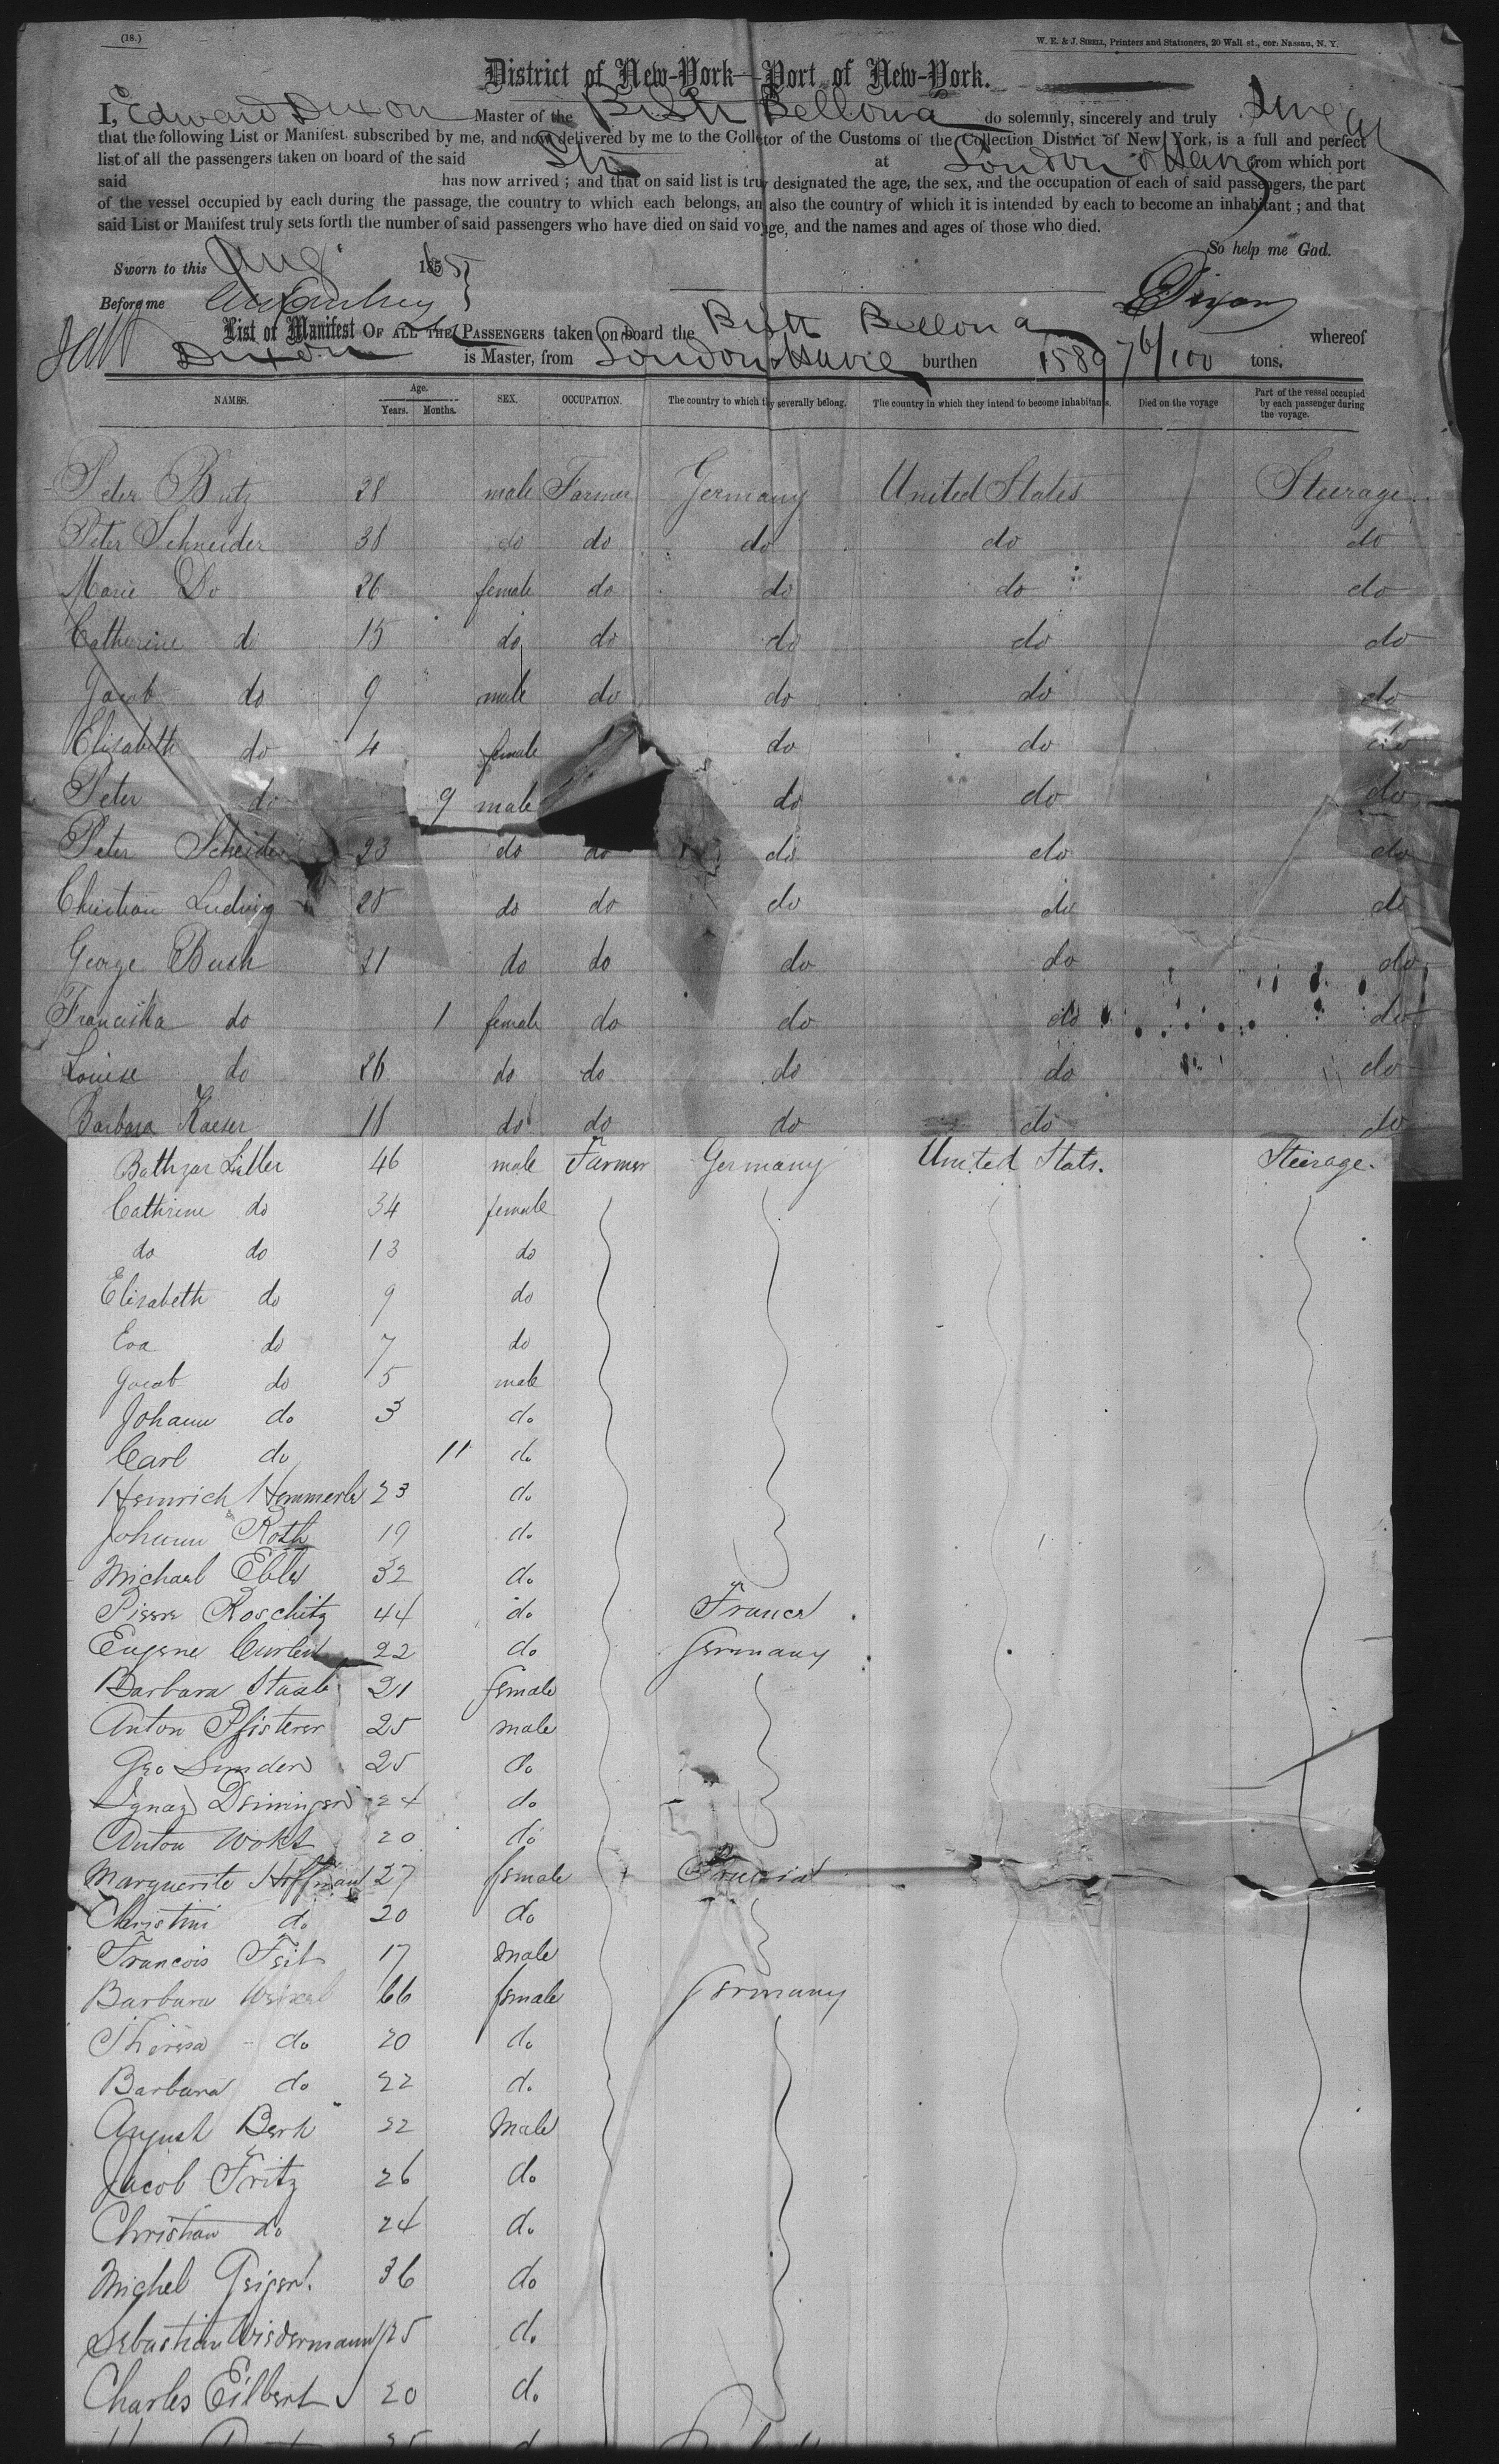 (18.)
W. E. & J. SIBELL, Printers and Stationers, 20 Wall st., cor. Nassau, N. Y.
District of New-York—Port of New-York.
I, Edward Dixon Master of the Britt Bellona do solemnly, sincerely and truly swear
that the following List or Manifest, subscribed by me, and now delivered by me to the Collector of the Customs of the Collection District of New York, is a full and perfect
list of all the passengers taken on board of the said at London & Havre from which port
said has now arrived; and that on said list is truly designated the age, the sex, and the occupation of each of said passengers, the part
of the vessel occupied by each during the passage, the country to which each belongs, and also the country of which it is intended by each to become an inhabitant; and that
said List or Manifest truly sets forth the number of said passengers who have died on said voyage, and the names and ages of those who died.
So help me God.
Sworn to this Aug 1865
Before me E Dixon
List or Manifest OF ALL THE PASSENGERS taken on board the Britt Bellona whereof
Dixon is Master, from London & Havre burthen 1589 76/100 tons.
NAMES. Age. Years. Months. SEX. OCCUPATION. The country to which they severally belong. The country in which they intend to become inhabitants. Died on the voyage Part of the vessel occupied by each passenger during the voyage.
Peter Butz 28 male Farmer Germany United States Steerage
Peter Schneider 38 do do do do do
Marie Do 26 female do do do do
Catherine do 15 do do do do do
Jacob do 9 male do do do do
Elisabeth do 4 female do do do
Peter do 9 male do do do
Peter Scheider 23 do do do do do
Christian Ludwig 25 do do do do do
George Bush 31 do do do do do
Franciska do 1 female do do do do
Louise do 26 do do do do do
Barbara Kaeser 18 do do do do do
Balthzar Liller 46 male Farmer Germany United Stats. Steerage.
Cathrine do 34 female
do do 13 do
Elisabeth do 9 do
Eva do 7 do
Jacob do 5 male
Johann do 3 do
Carl do 11 do
Heinrich Hemmerle 23 do
Johann Roth 19 do
Michael Ebler 32 do
Pierre Roschitz 44 do France
Eugene 22 do Germany
Barbara Staab 21 female
Anton Pfisterer 25 male
Geo Sunder 25 do
Ignaz Deininger 24 do
Anton 20 do
Marguerite Hoffman 27 female Prussia
Christini do 20 do
Francois Feit 17 male
Barbara 66 female Germany
Theresa do 20 do
Barbara do 22 do
August Berk 22 Male
Jacob Fritz 26 do
Christian do 24 do
Michel Geiger 36 do
Sebastian Wiedermann 25 do
Charles Eilbert 20 do